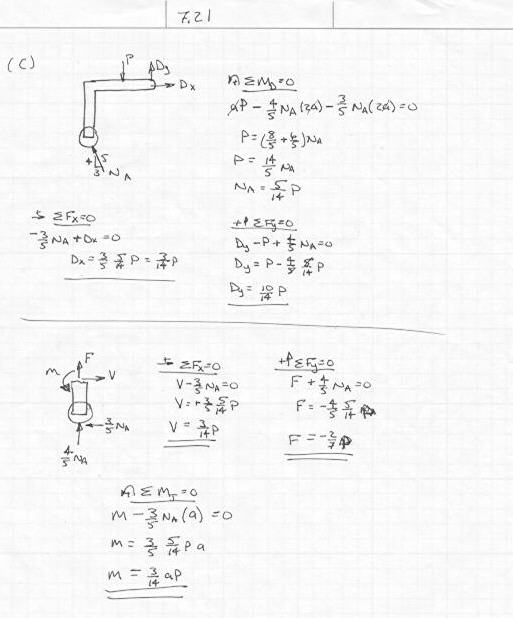 7.21
(C)
P
Dy
Dx
4 5
3 NA
ΣMD=0
aP - 4/5 NA(2a) - 3/5 NA(2a)=0
P=(8/5+6/5)NA
P= 14/5 NA
NA = 5/14 P
ΣFx=0
-3/5 NA + Dx = 0
Dx = 3/5 5/14 P = 3/14 P
+↑ΣFy=0
Dy - P + 4/5 NA=0
Dy = P - 4/5 5/14 P
Dy = 10/14 P
F
M
V
3/5 NA
4/5 NA
ΣFx=0
V-3/5 NA=0
V=+3/5 5/14 P
V = 3/14 P
+↑ΣFy=0
F + 4/5 NA=0
F = -4/5 5/14 P
F = -2/7 P
ΣMJ=0
M - 3/5 NA(a) = 0
M = 3/5 5/14 P a
M = 3/14 aP